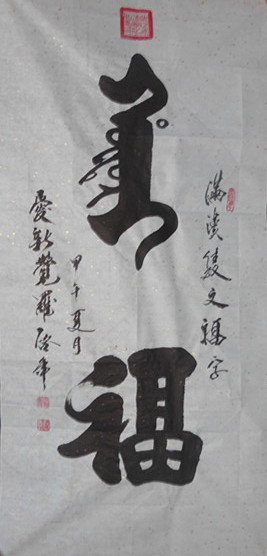 滿漢文福字
ᡥᡡᡨᡠᡵᡳ
福
甲午夏月
愛新覺羅